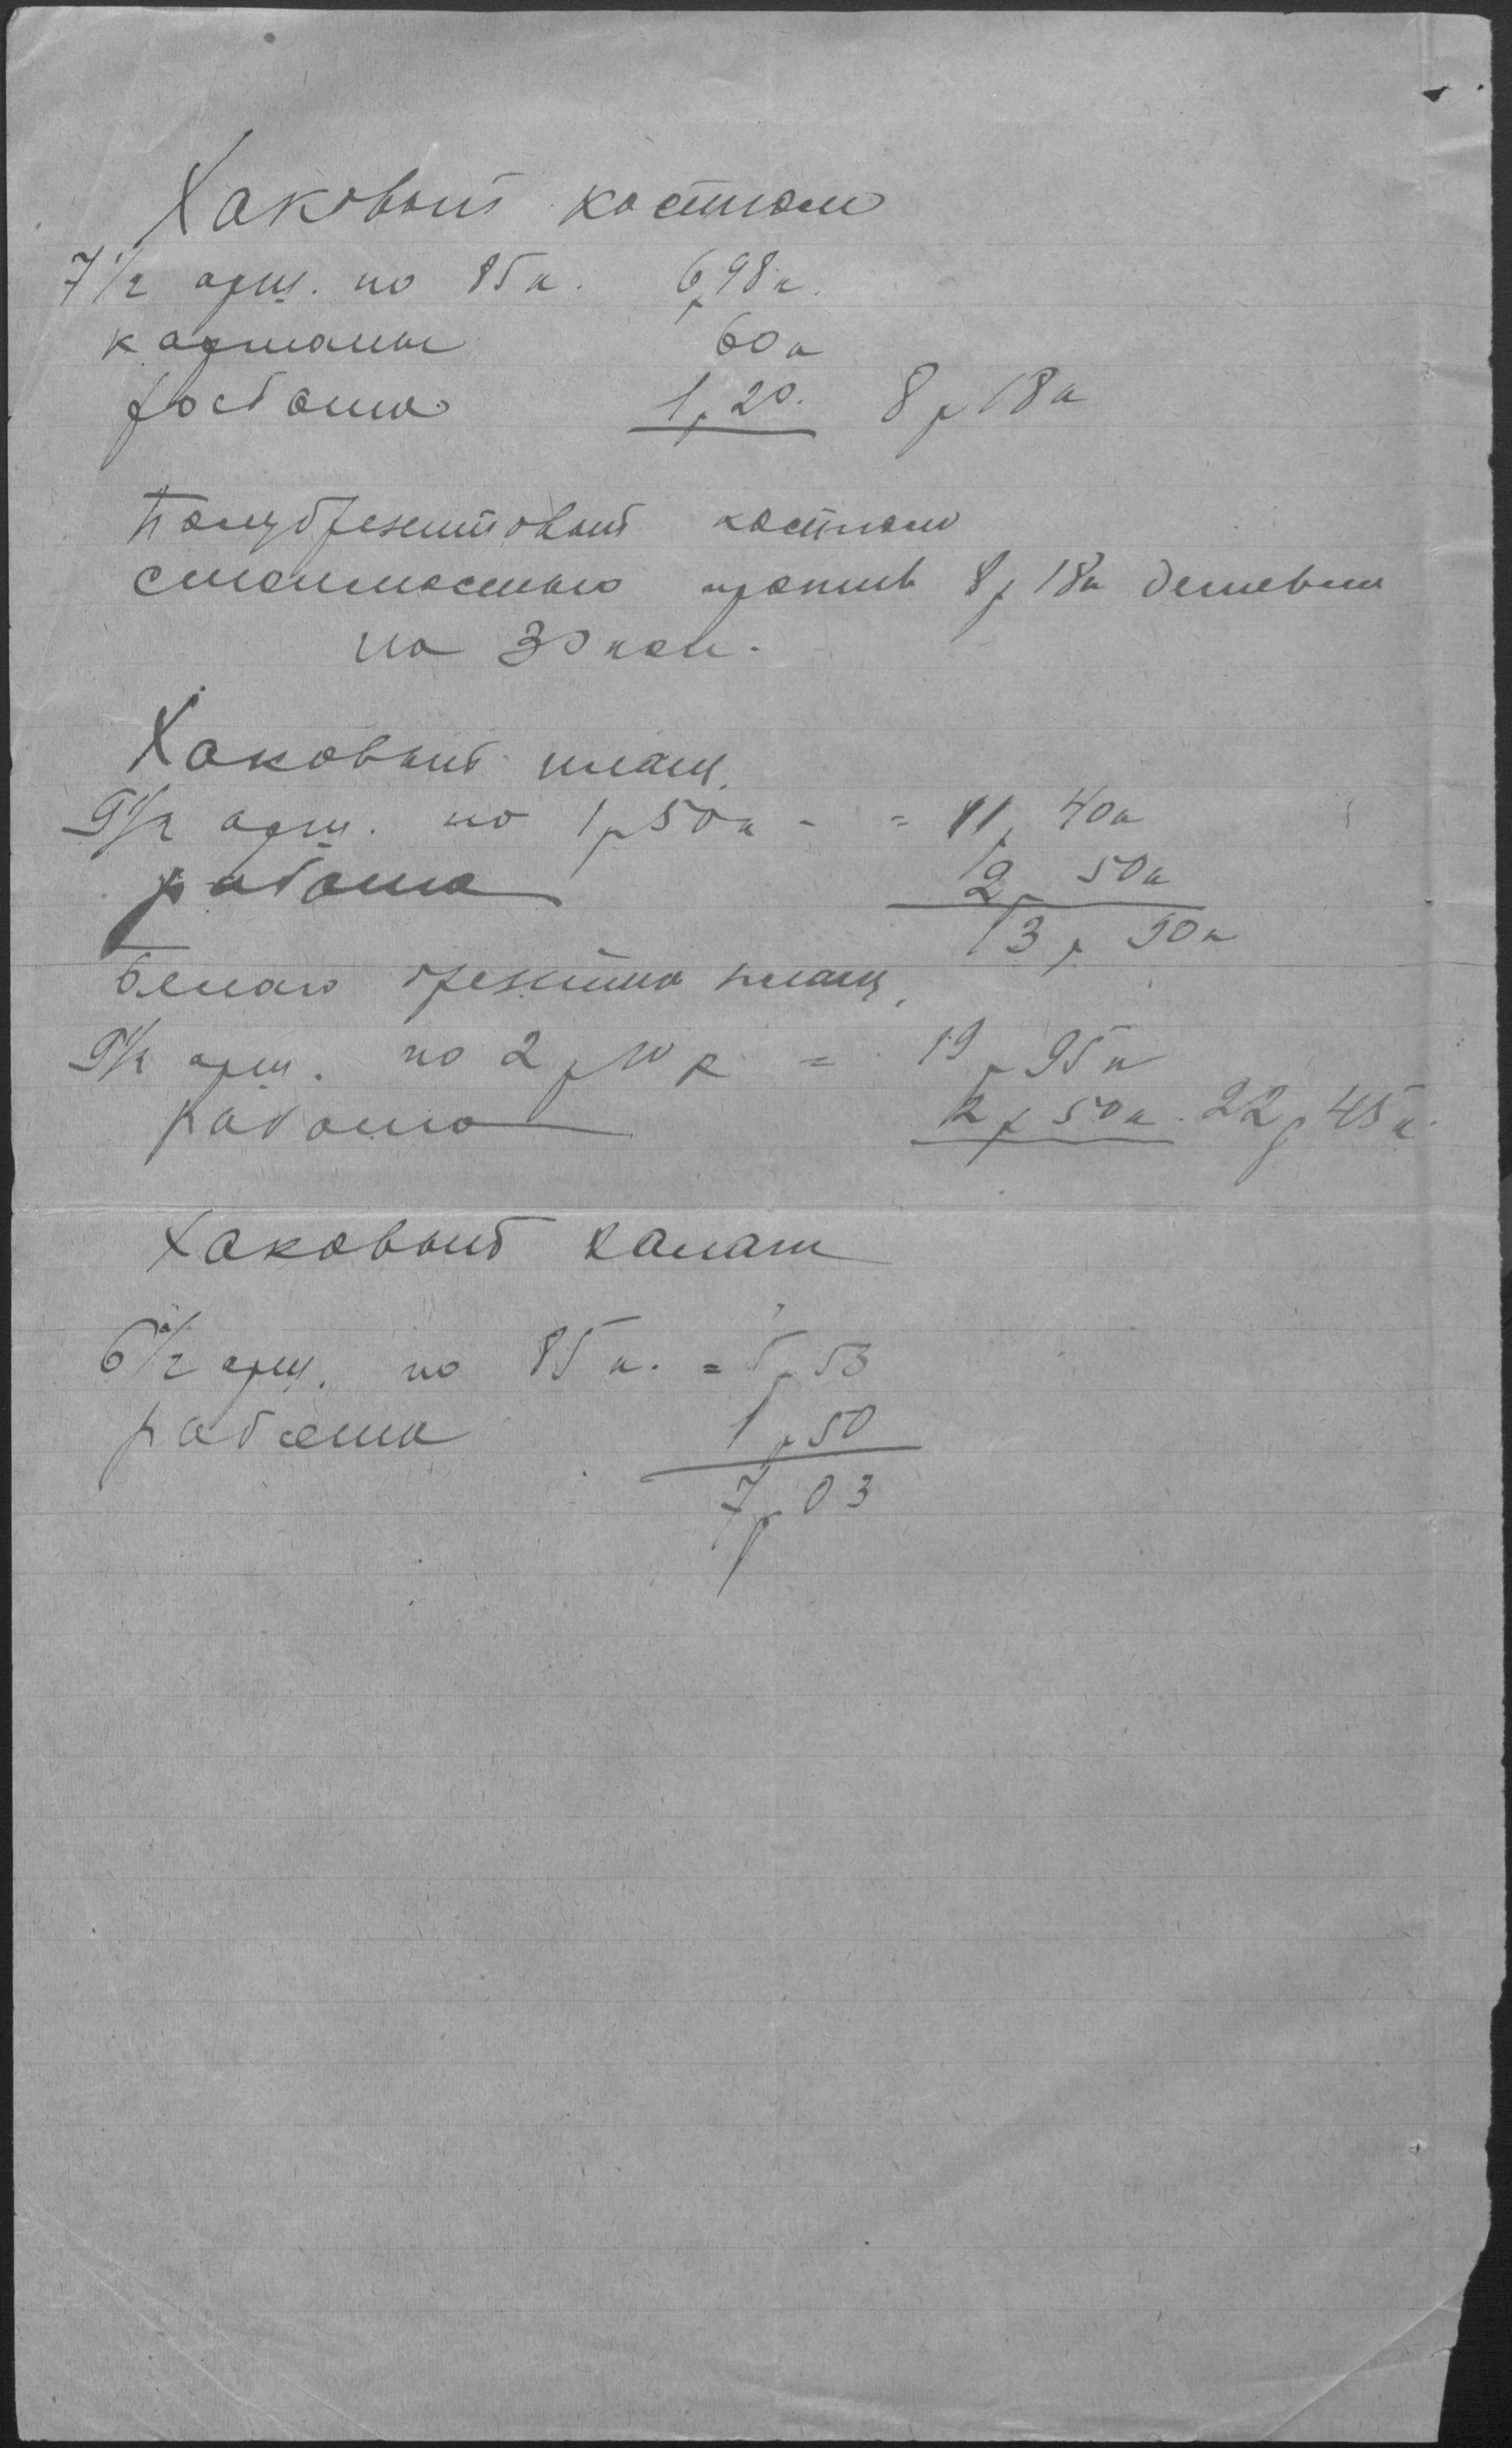 Хаковый костюм
7 1/2 арш. по 85 к. 6р 98 к.
карманы 60 к
работа 1р 20. 8р 18 к
Полубрезентовый костюм
стоимостью против 8р 18 к дешевле
на 30 коп.
Хаковый плащ.
9 1/2 арш. по 1р 50 к - = 11р 40 к
работа 2р 50 к
13р 90 к
Белаго брезента плащ,
9 1/2 арш. по 2р 10 к = 19р 95 к
работа 2р 50 к. 22р 45 к.
Хаковый халат
6 1/2 арш. по 85 к. = 5р 53
работа 1р 50
7р 03